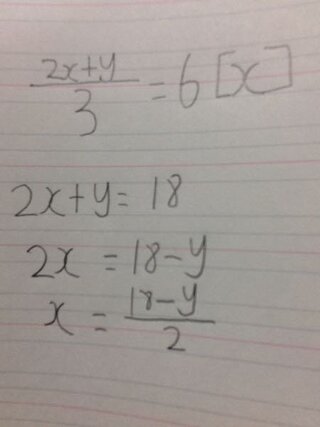 (2x+y)/3 = 6 [x]
2x+y = 18
2x = 18-y
x = (18-y)/2